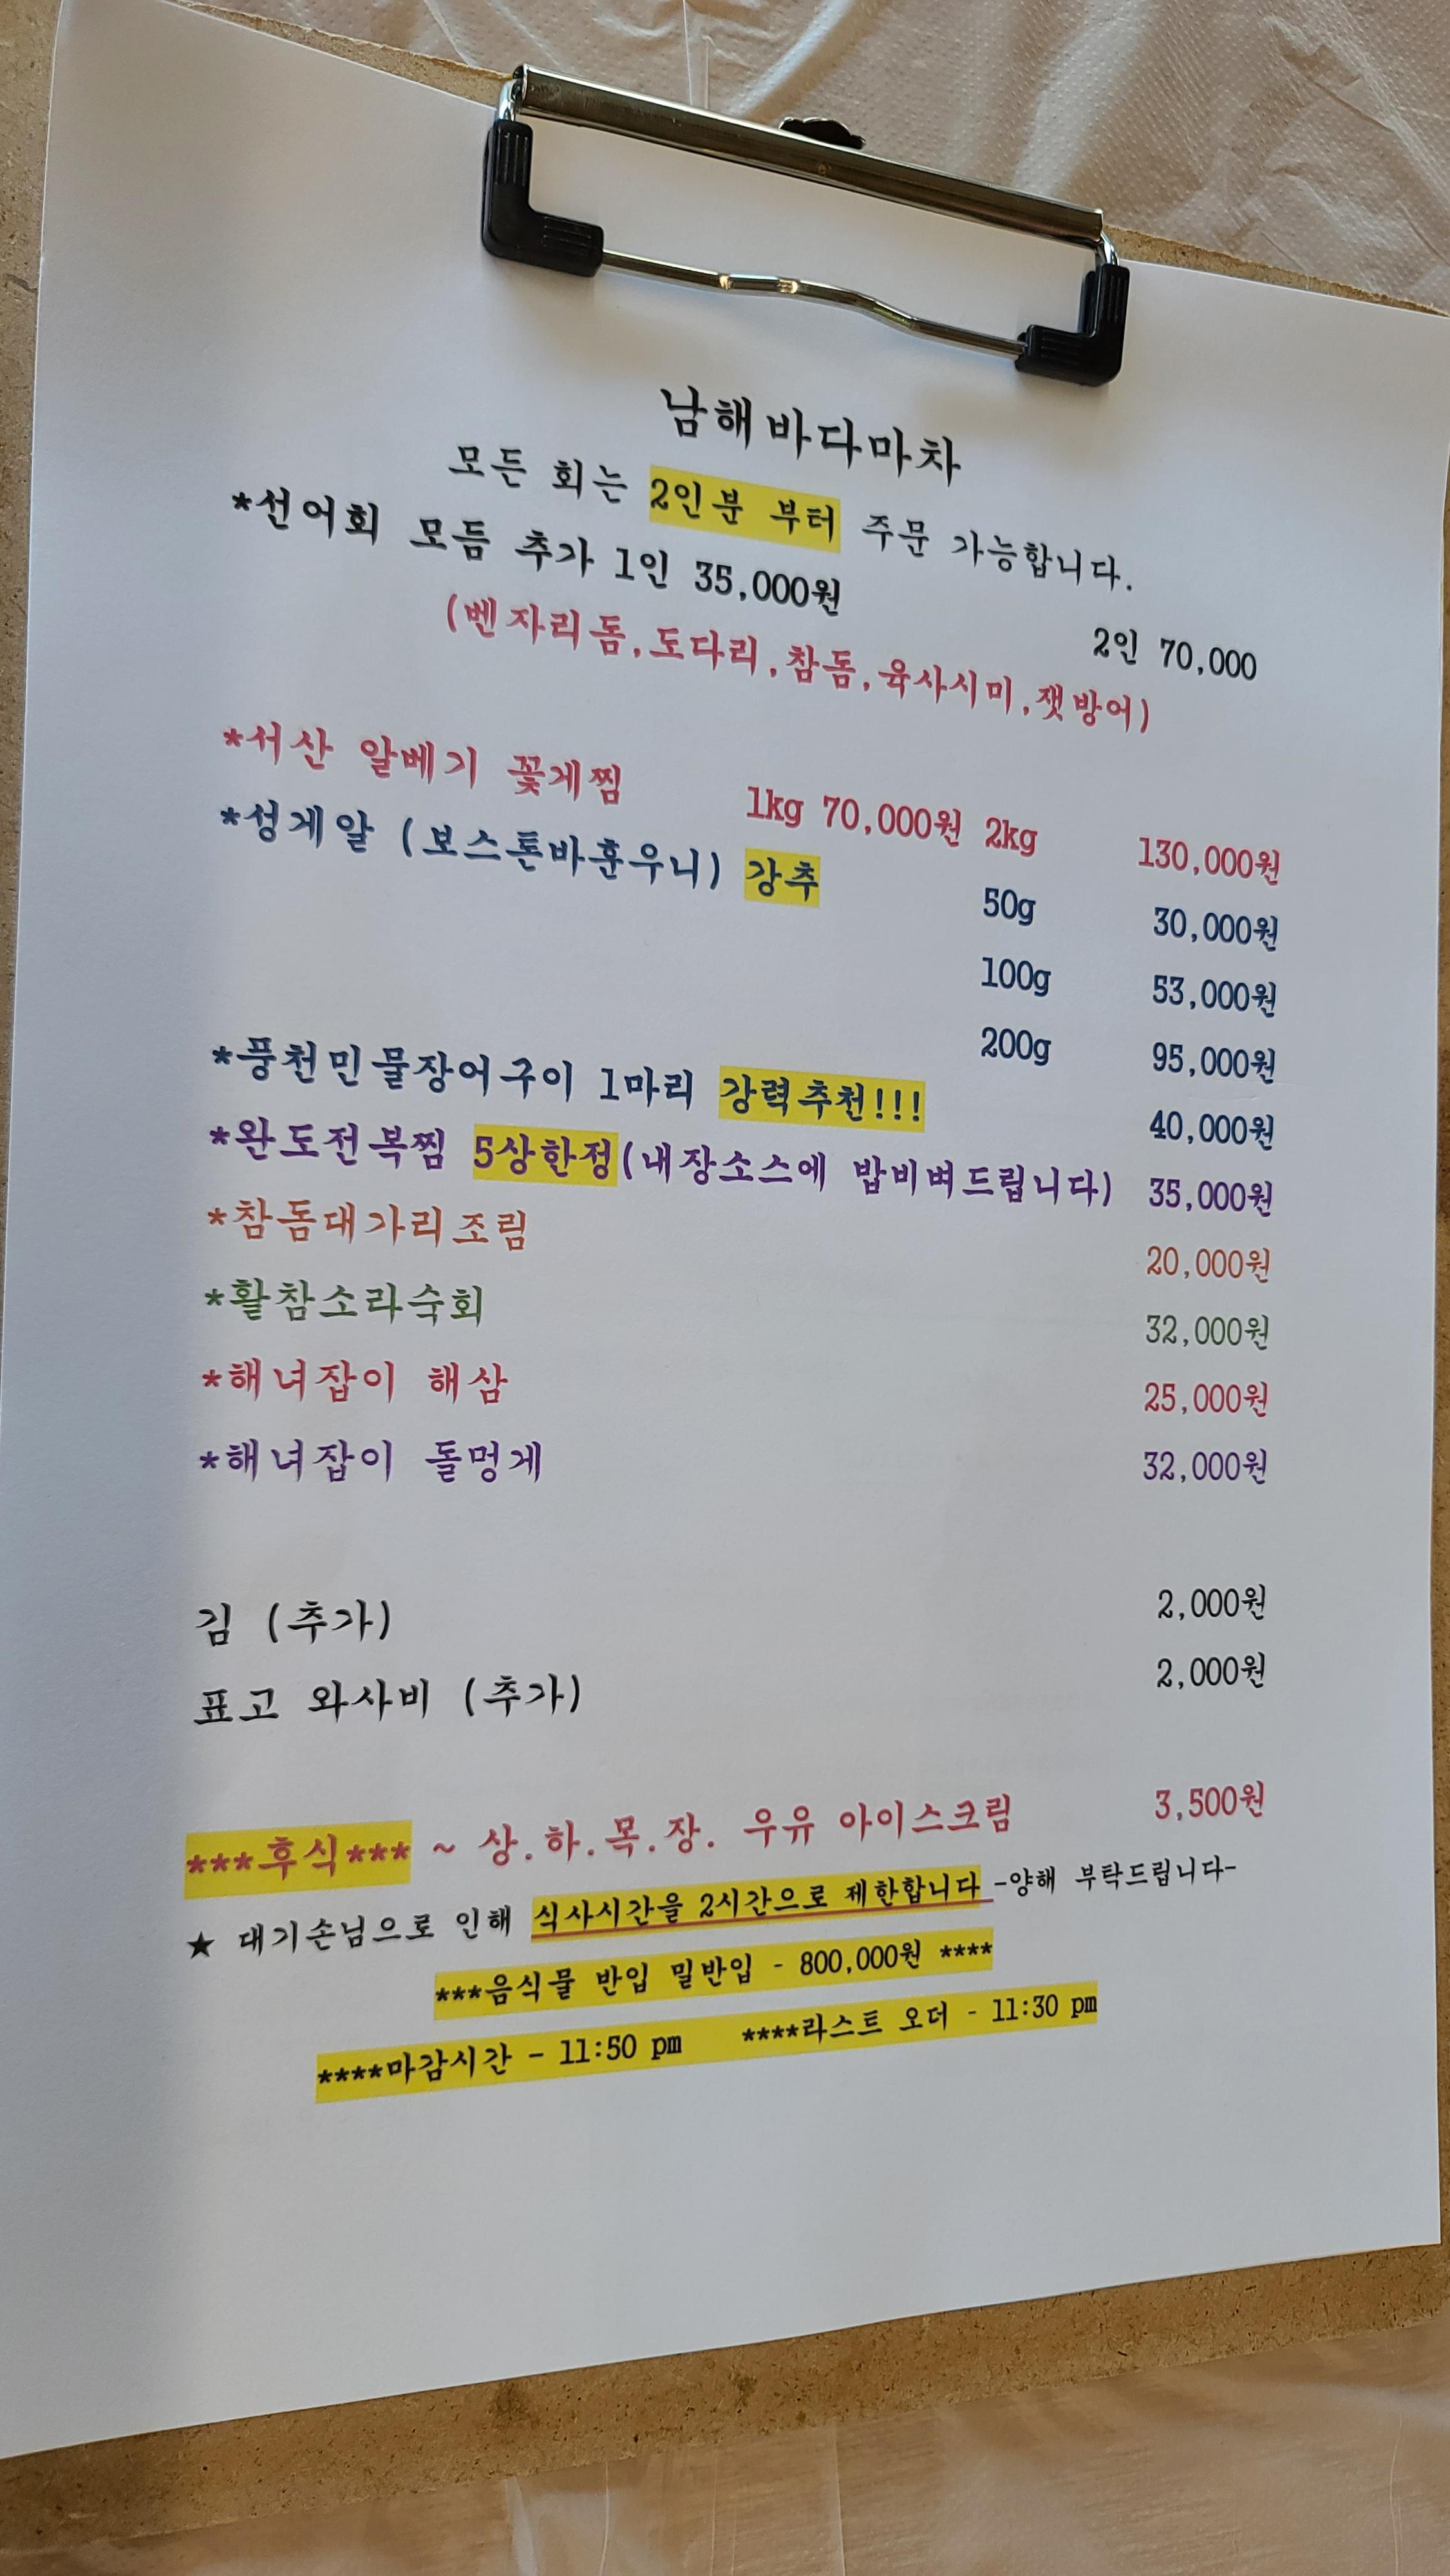 남해바다마차
모든 회는 2인분 부터 주문 가능합니다.
*선어회 모듬 추가 1인 35,000원 2인 70,000
(벤자리돔,도다리,참돔,육사시미,잿방어)
*서산 알베기 꽃게찜 1kg 70,000원 2kg 130,000원
*성게알 (보스톤바훈우니) 강추 50g 30,000원
100g 53,000원
200g 95,000원
*풍천민물장어구이 1마리 강력추천!!! 40,000원
*완도전복찜 5상한정(내장소스에 밥비벼드립니다) 35,000원
*참돔대가리조림 20,000원
*활참소라숙회 32,000원
*해녀잡이 해삼 25,000원
*해녀잡이 돌멍게 32,000원
김 (추가) 2,000원
표고 와사비 (추가) 2,000원
***후식*** ~ 상.하.목.장. 우유 아이스크림 3,500원
★ 대기손님으로 인해 식사시간을 2시간으로 제한합니다 -양해 부탁드립니다-
***음식물 반입 밀반입 - 800,000원 ****
****마감시간 - 11:50 pm ****라스트 오더 - 11:30 pm